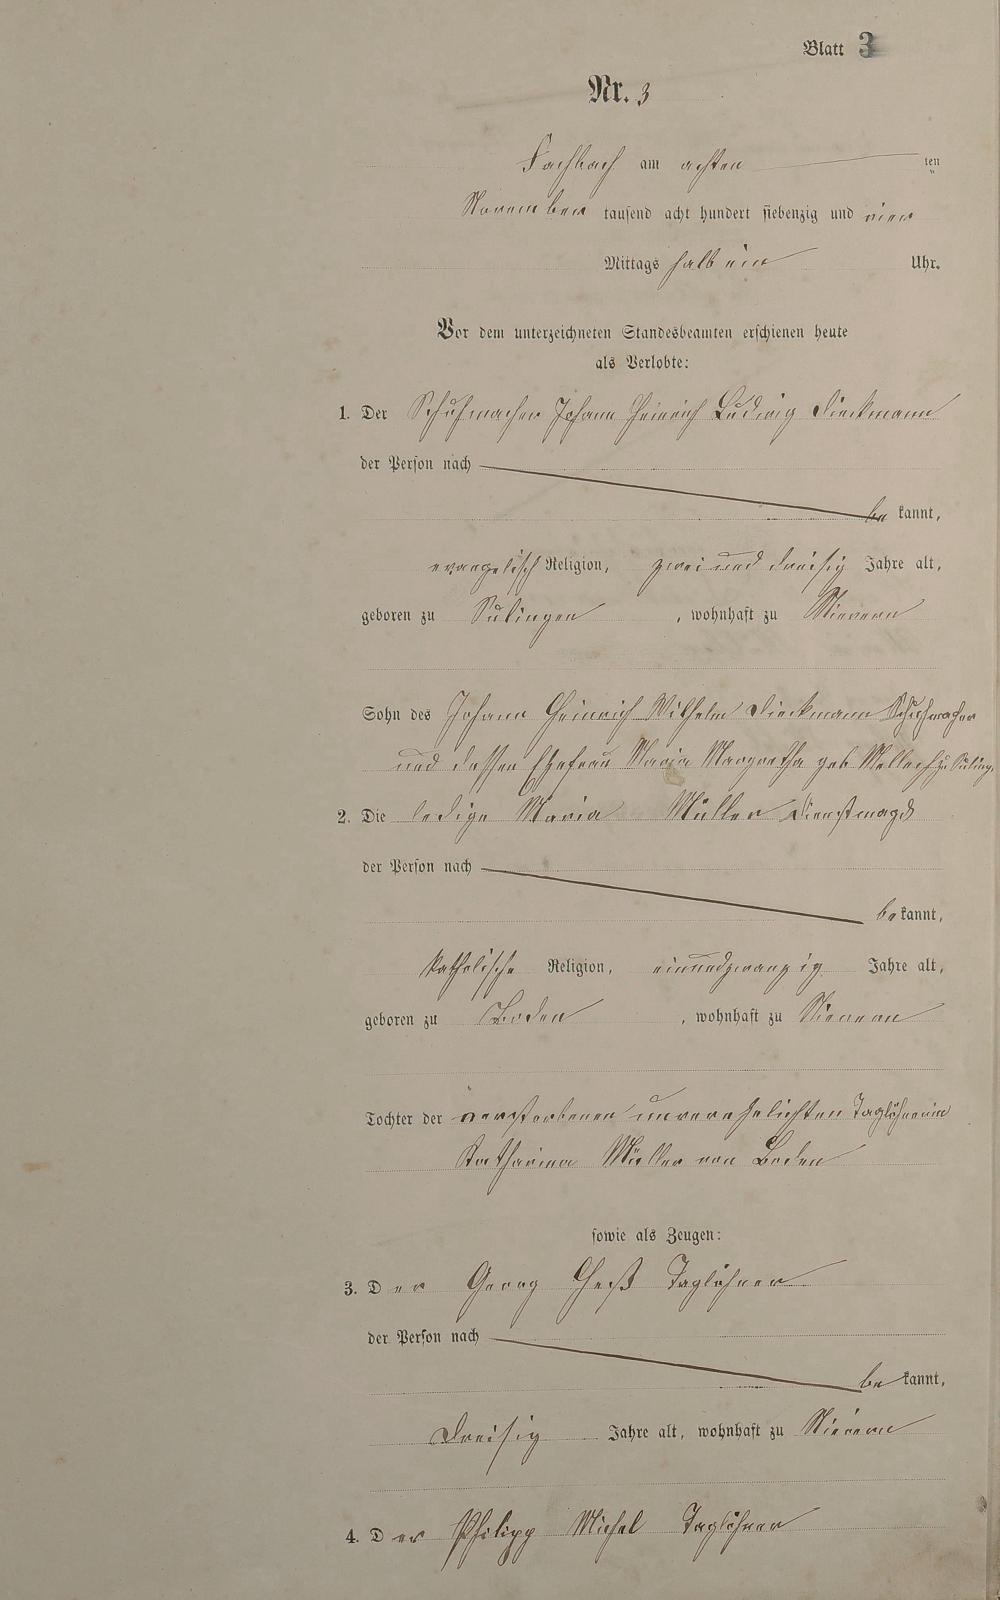 Blatt 3
Nr. 3
Fachbach am achten ten
November tausend acht hundert siebenzig und vier
Mittags halb ein Uhr.
Vor dem unterzeichneten Standesbeamten erschienen heute
als Verlobte:
1. Der Schuhmacher Johann Heinrich Ludwig Dieckmann
der Person nach
be kannt,
evangelisch Religion, zwei und dreisig Jahre alt,
geboren zu Sulingen , wohnhaft zu Nievern
Sohn des Johann Heinrich Wilhelm Dieckmann Schuhmacher
und dessen Ehefrau Maria Margretha geb zu Suling.
2. Die ledige Maria Müller Dienstmagd
der Person nach
be kannt,
katholische Religion, einundzwanzig Jahre alt,
geboren zu Boden , wohnhaft zu Nievern
Tochter der verstorbenen unverehelichten Taglöhnerin
Katharina Müller von Boden
sowie als Zeugen:
3. Der Georg Heß Taglöhner
der Person nach
be kannt,
Dreisig Jahre alt, wohnhaft zu Nievern
4. Der Philipp Michel Taglöhner